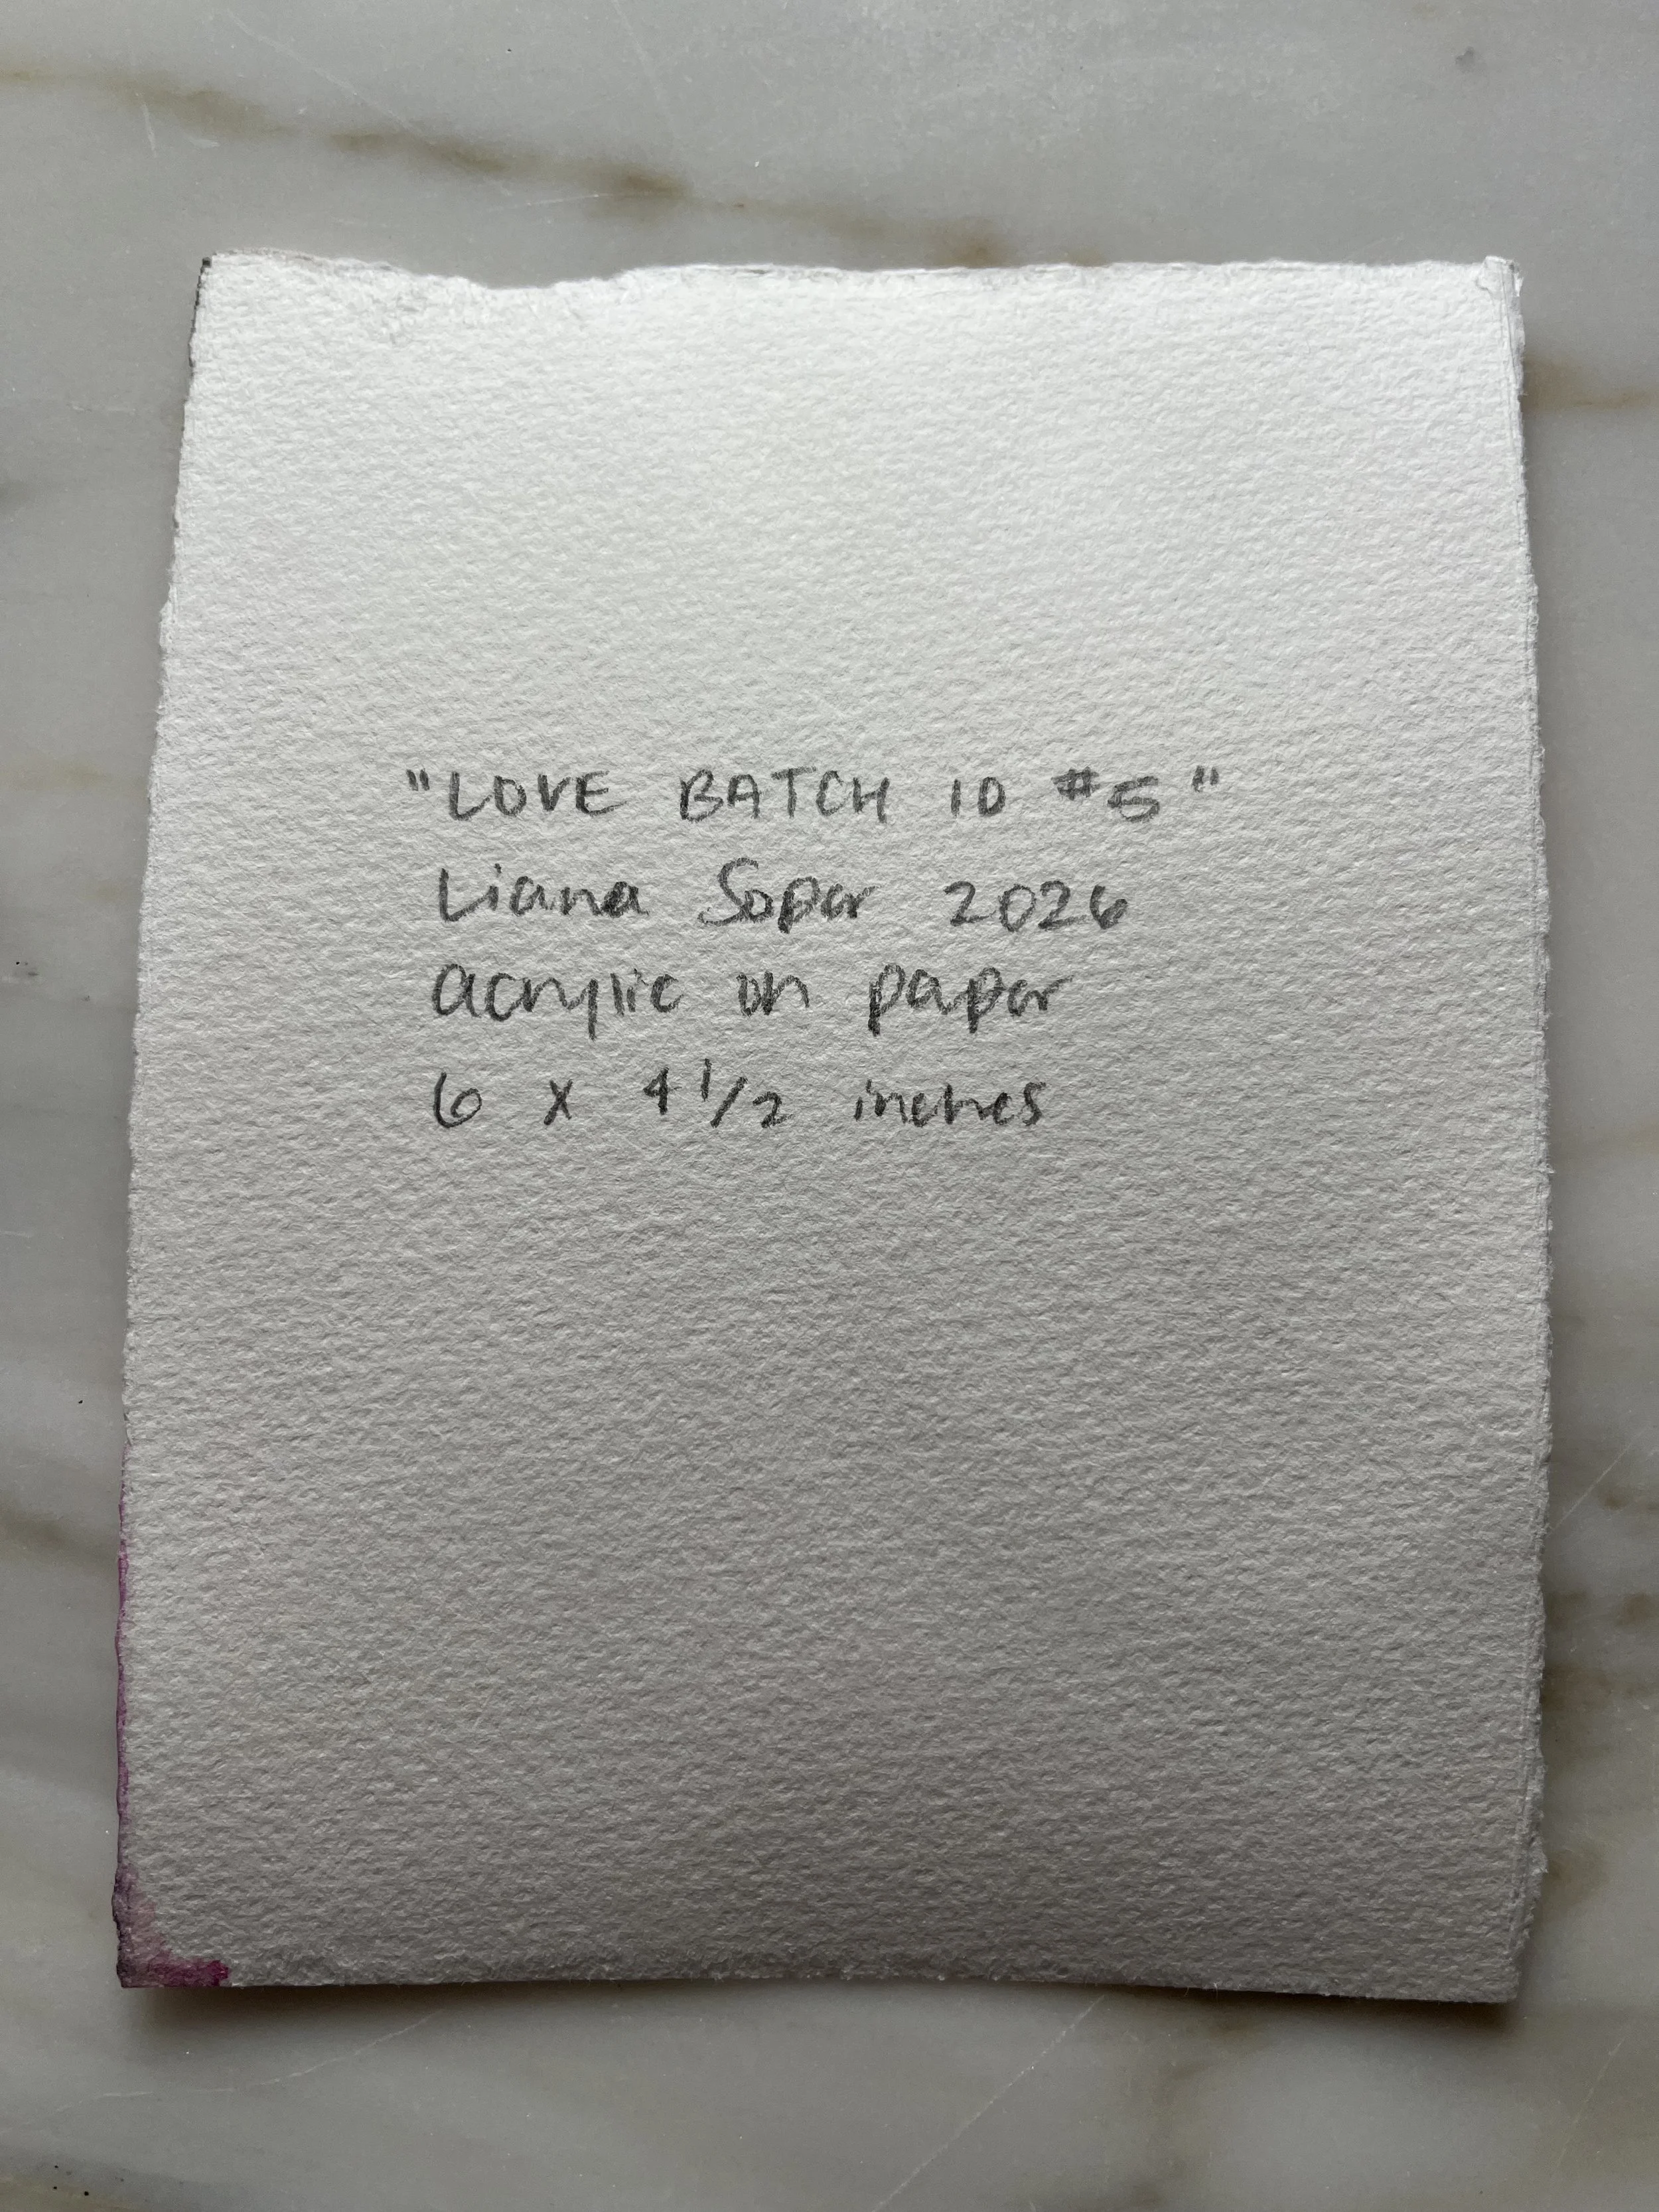 "LOVE BATCH 10 #5"
Liana Soper 2026
acrylic on paper
6 x 4 1/2 inches